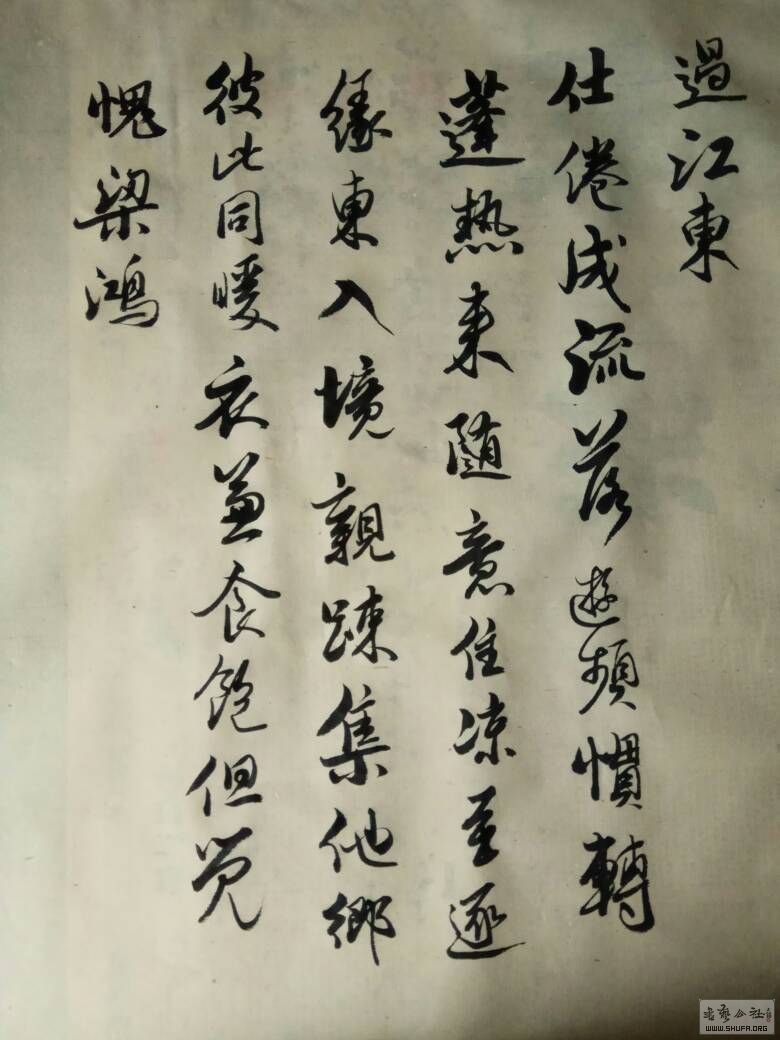 過江東
仕倦成流落遊頻慣轉
蓬热来随意住凉至逐
緣東入境親疎集他鄉
彼此同暖衣兼食飽但覚
愧梁鴻
書藝公社
WWW.SHUFA.ORG